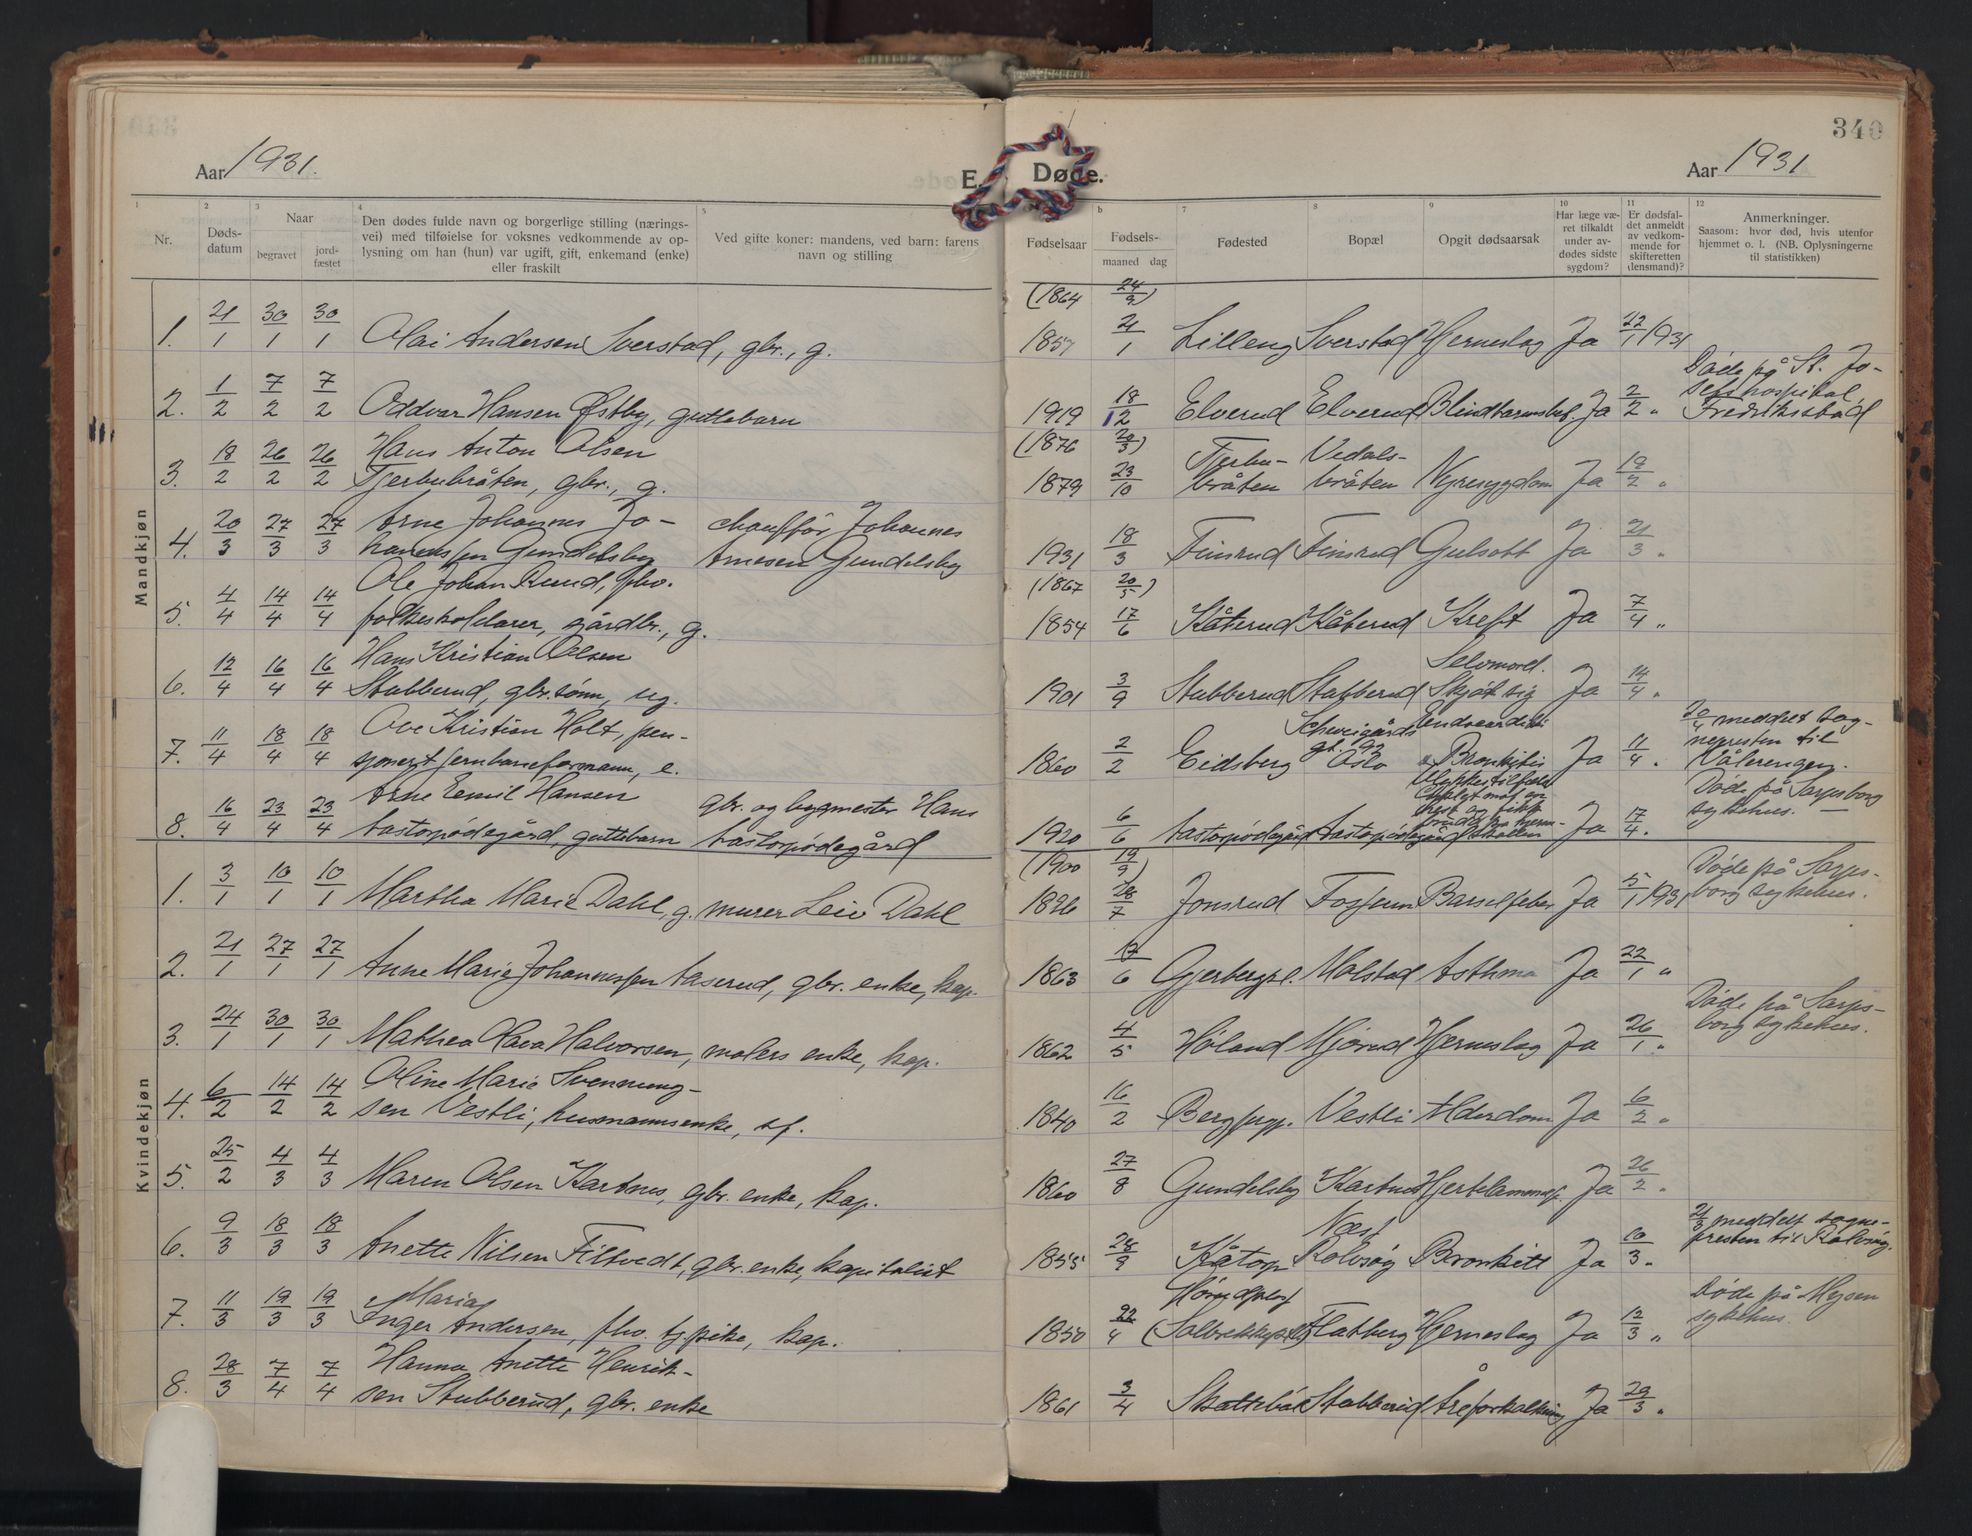 340
Aar 1931.
E. Døde.
Aar 1931
1 2 3 4 5 b 7 8 9 10 11 12
Nr.
Døds-
datum
Naar
begravet
jord-
fæstet
Den dødes fulde navn og borgerlige stilling (nærings-
vei) med tilføielse for voksnes vedkommende av op-
lysning om han (hun) var ugift, gift, enkemand (enke)
eller fraskilt
Ved gifte koner: mandens, ved barn: farens
navn og stilling
Fødselsaar
Fødsels-
maaned dag
Fødested
Bopæl
Opgit dødsaarsak
Har læge væ-
ret tilkaldt
under av-
dødes sidste
sygdom?
Er dødsfal-
det anmeldt
av vedkom-
mende for
skifteretten
(lensmand)?
Anmerkninger.
Saasom: hvor død, hvis utenfor
hjemmet o. l. (NB. Oplysningerne
til statistikken)
Mandkjøn
(1864 24/9)
1. 21/1 30/1 30/1 Olai Andersen Sverstad, gbr., g. 1857 21/1 Lilleng Sverstad Hjerneslag Ja 22/1 1931
2. 1/2 7/2 7/2 Oddvar Hansen Østby, guttebarn 1919 18/12 Elverud Elverud Blindtarmsbet. Ja 2/2 "
Døde på St. Jo-
sefs hospital,
Fredrikstad
(1876 20/3)
3. 18/2 26/2 26/2 Hans Anton Olsen
Tjerbubråten, gbr., g. 1879 23/10 Tjerbu-
bråten Vedals-
bråten Nyresygdom Ja 19/2 "
4. 20/3 27/3 27/3 Arne Johannes Jo-
hannessen Gundelsby chauffør Johannes
Arnesen Gundelsby 1931 18/3 Finsrud Finsrud Gulsott Ja 21/3 "
(1867 20/5)
5. 4/4 14/4 14/4 Ole Johan Ruud, fho.
folkeskolelærer, gårdbr., g. 1854 17/6 Kåterud Kåterud Kreft Ja 7/4 "
6. 12/4 16/4 16/4 Hans Kristian Olsen
Stubberud, gbr. sønn, ug. 1901 3/9 Stubberud Stubberud Selvmord.
Skjøt sig Ja 14/4 "
7. 11/4 18/4 18/4 Ove Kristian Holt, pen-
sjonert jernbaneformann, e. 1860 2/2 Eidsberg Schweigårds
gt. 92
Oslo Endocarditis
& Bronkitis Ja 11/4 "
20/4 meddelt sog-
nepresten til
Vålerengen.
8. 16/4 23/4 23/4 Arne Emil Hansen
Aastorpødegård, guttebarn gbr. og bygmester Hans
Aastorpødegård 1920 6/6 Aastorpødegård Aastorpødegård Ulykkestilfelle
Ja 17/4 "
Døde på Sarpsborg
sykehus.
Kvindekjøn
(1900 19/9)
1. 3/1 10/1 10/1 Martha Marie Dahl, g. murer Leiv Dahl 1896 28/7 Jonsrud Fossum Barselfeber Ja 5/1 1931
Døde på Sarps-
borg sykehus.
2. 21/1 27/1 27/1 Anne Marie Johannessen Aaserud, gbr. enke, kap. 1863 17/6 Gjerbergpl. Molstad Asthma Ja 22/1 "
3. 24/1 30/1 30/1 Mathea Olava Halvorsen, malers enke, kap. 1862 4/5 Høland Mjørud Hjerneslag Ja 26/1 "
Døde på Sarps-
borg sykehus.
4. 6/2 14/2 14/2 Oline Marie Svennung-
sen Vestli, husmannsenke, af. 1840 16/2 Vestli Alderdom Ja 6/2 "
5. 25/2 4/3 4/3 Maren Olsen Kartnes, gbr. enke, kap. 1860 27/8 Gundelsby Kartnes Hjertelammelse. Ja 26/2 "
6. 9/3 18/3 18/3 Anette Nilsen Filtvedt, gbr. enke, kapitalist 1855 28/9 Kåtorp Næs
Rolvsøy Bronkitt Ja 10/3 "
21/3 meddelt sogne-
presten til Rolvsøy.
7. 11/3 19/3 19/3 Maria
Inger Andersen, fho. tj. pike, kap. 1850 22/4 Mørudplass
(Solbrekkeplass) Flatberg Hjerneslag Ja 12/3 "
Døde på Mysen
sykehus.
8. 28/3 7/4 7/4 Hanna Anette Henrik-
sen Stubberud, gbr. enke 1861 3/4 Skattebøl Stubberud Åreforkalkning Ja 29/3 "